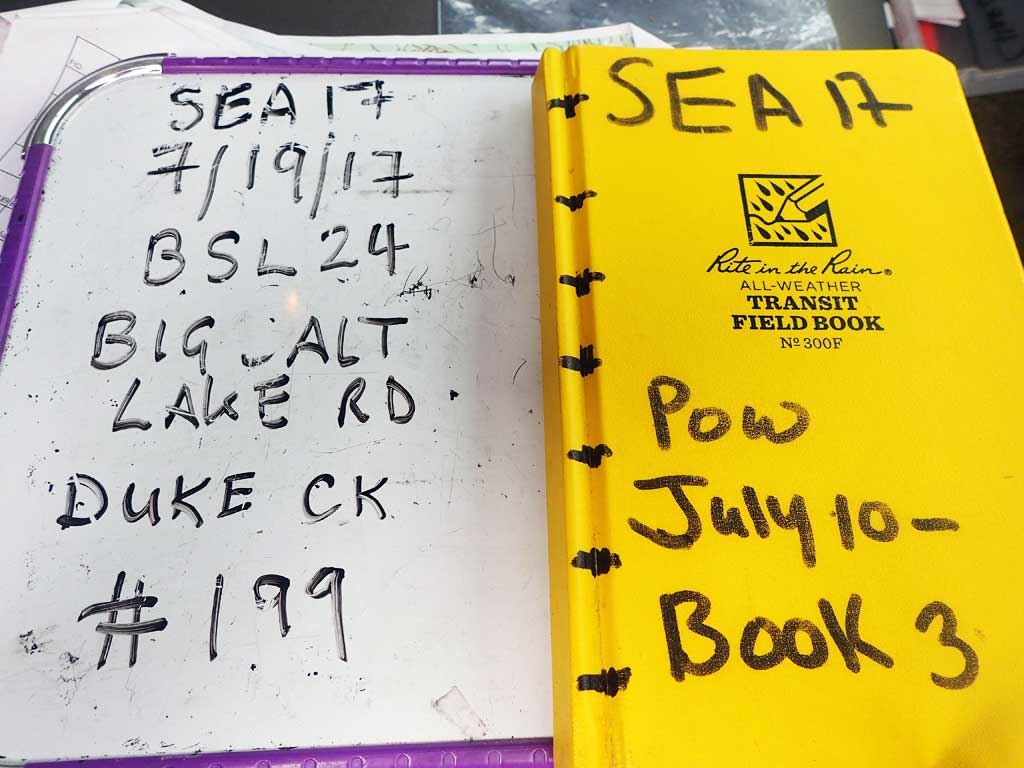 SEA 17
7/19/17
BSL 24
BIG SALT
LAKE RD
DUKE CK
#199
SEA 17
Rite in the Rain®
ALL-WEATHER
TRANSIT
FIELD BOOK
Nº 300F
Pow
July 10-
Book 3